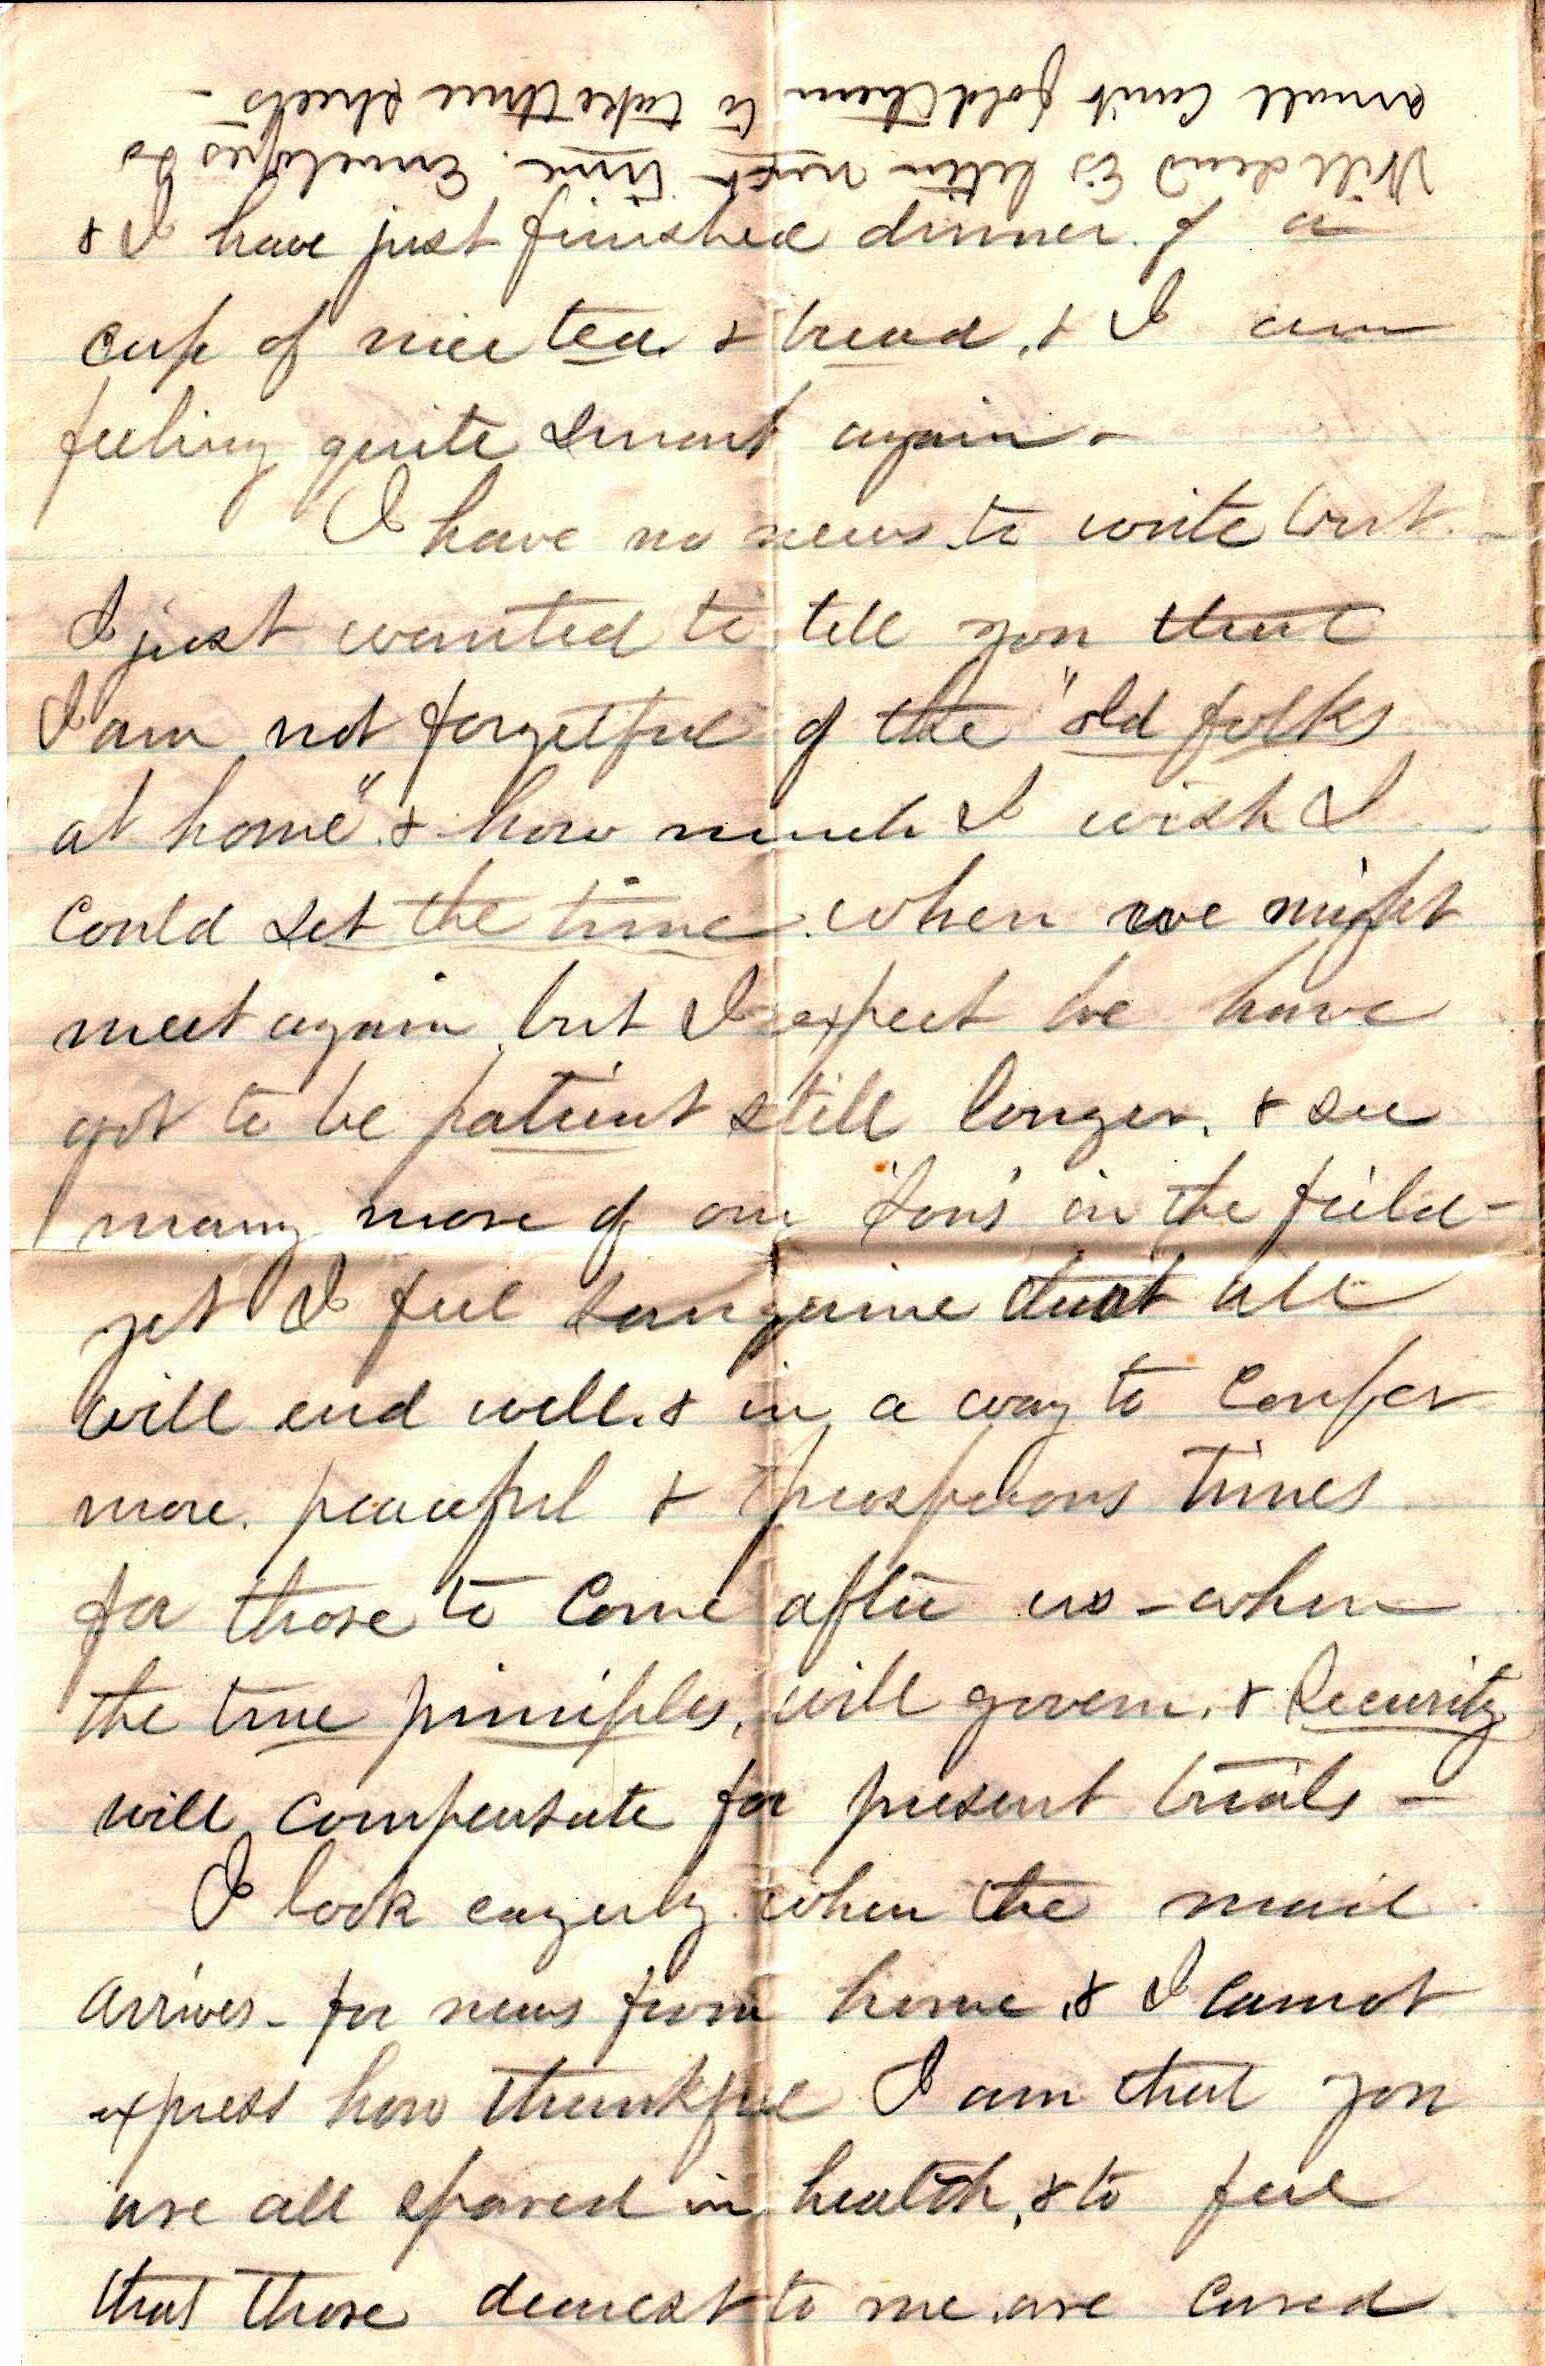 Will send E's letter next time. Envelopes so
small can't fold them to take three sheets -
& I have just finished dinner of a
cup of nice tea & bread, & I am
feeling quite smart again -
I have no news to write but -
I just wanted to tell you that
I am not forgetful of the "old folks
at home" & how much I wish I
could set the time when we might
meet again but I expect we have
got to be patient still longer, & see
many more of our 'sons' in the field -
yet I feel sanguine that all
will end well, & in a way to confer
more peaceful & prosperous times
for those to come after us - when
the true principles, will govern, & Security
will compensate for present trials -
I look eagerly when the mail
arrives - for news from home, & I cannot
express how thankful I am that you
are all spared in health, & to feel
that those dearest to me are cared